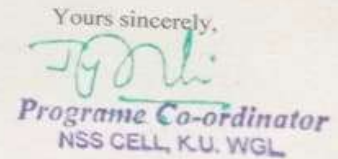 Yours sincerely,
Programe Co-ordinator
NSS CELL, K.U. WGL